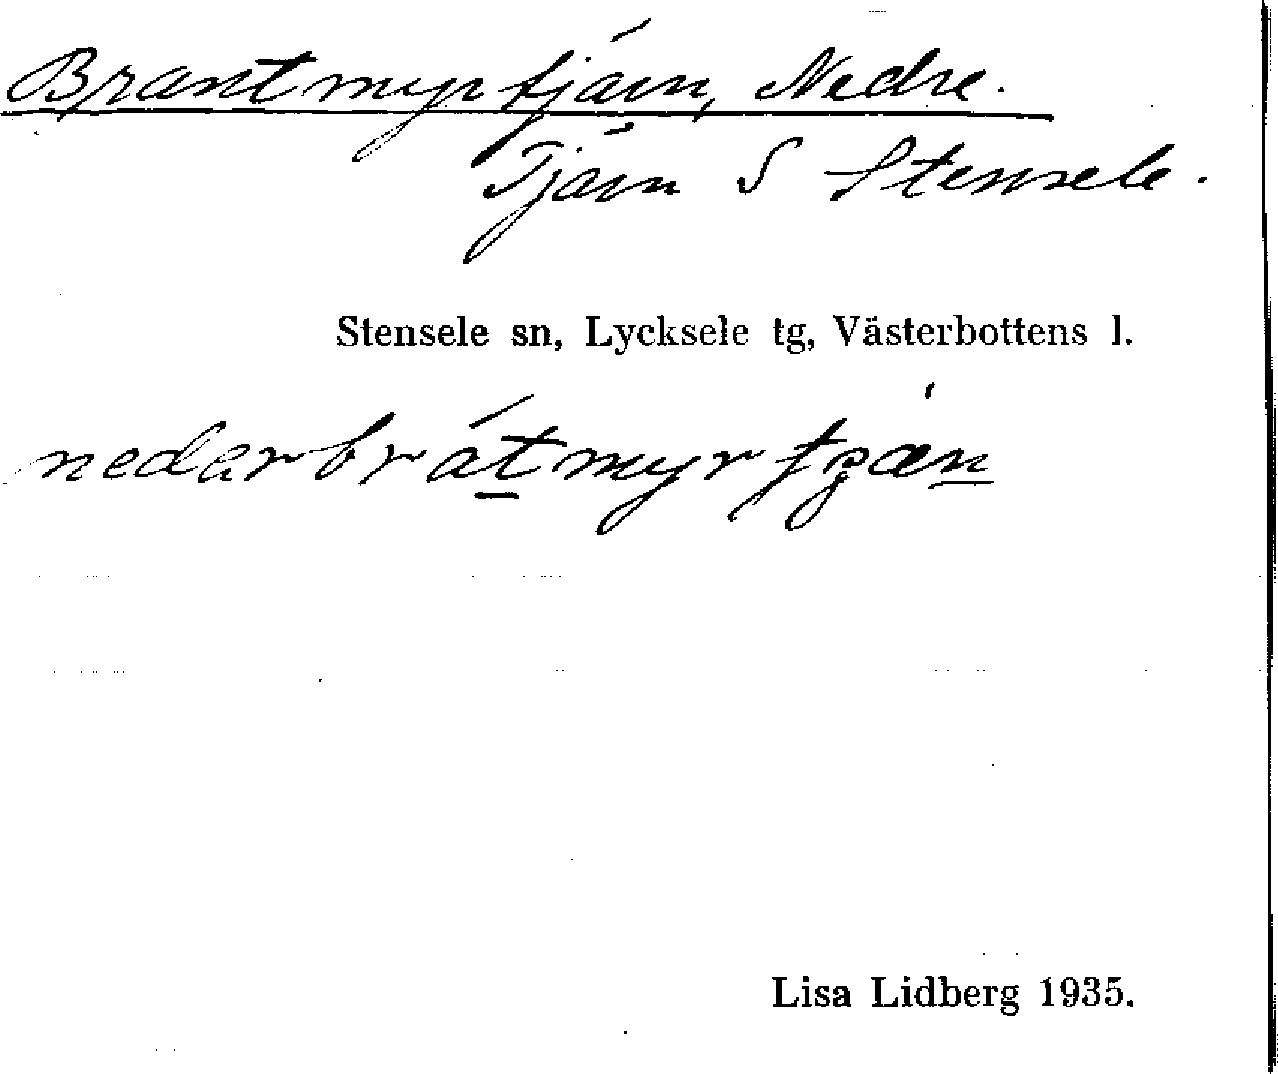 Brantmyrtjärn, Nedre.
Tjärn S Stensele.
Stensele sn, Lycksele tg, Västerbottens l.
nedarbrátmyrtjæn
Lisa Lidberg 1935.